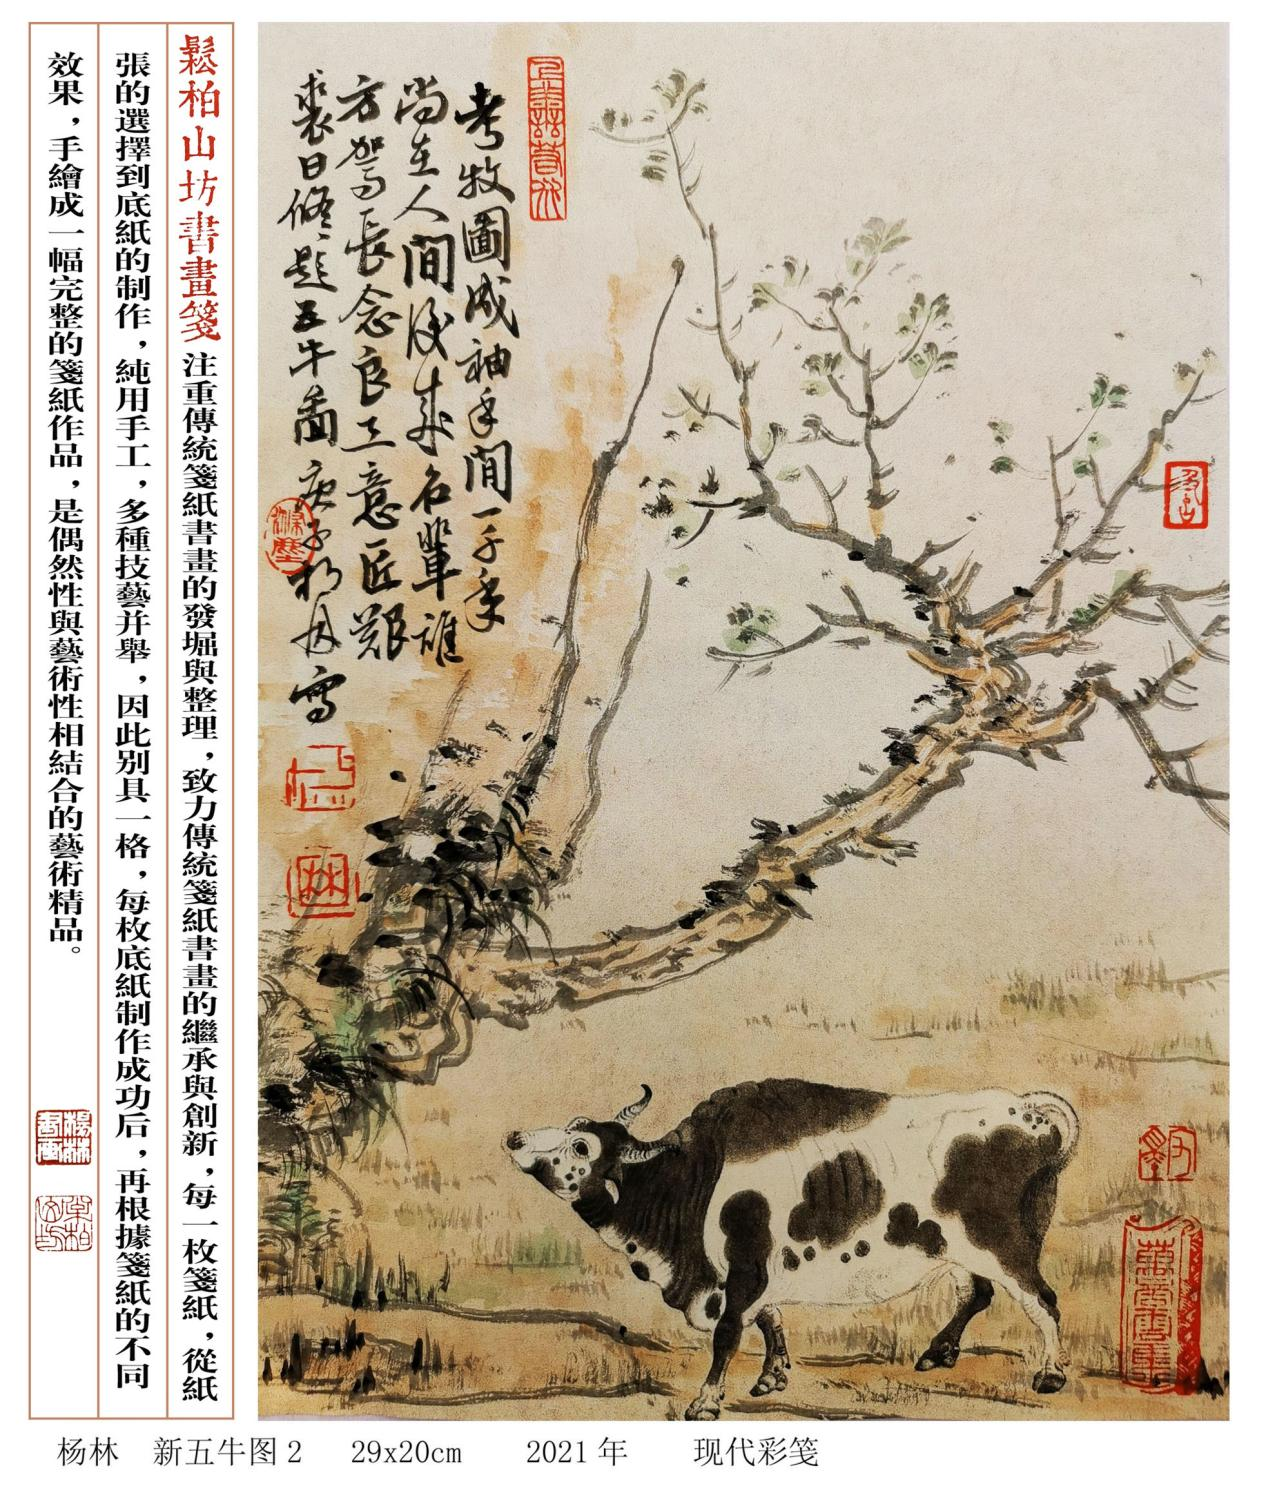 鬆柏山坊書畫箋 注重傳統箋紙書畫的發堀與整理，致力傳統箋紙書畫的繼承與創新，每一枚箋紙，從紙
張的選擇到底紙的制作，純用手工，多種技藝并舉，因此別具一格，每枚底紙制作成功后，再根據箋紙的不同
效果，手繪成一幅完整的箋紙作品，是偶然性與藝術性相結合的藝術精品。
考牧圖成袖手間一千年
尚在人間後來名輩誰
方駕長念良工意匠艱
裘日修題五牛圖庚子楊林寫
杨林 新五牛图2 29x20cm 2021年 现代彩笺